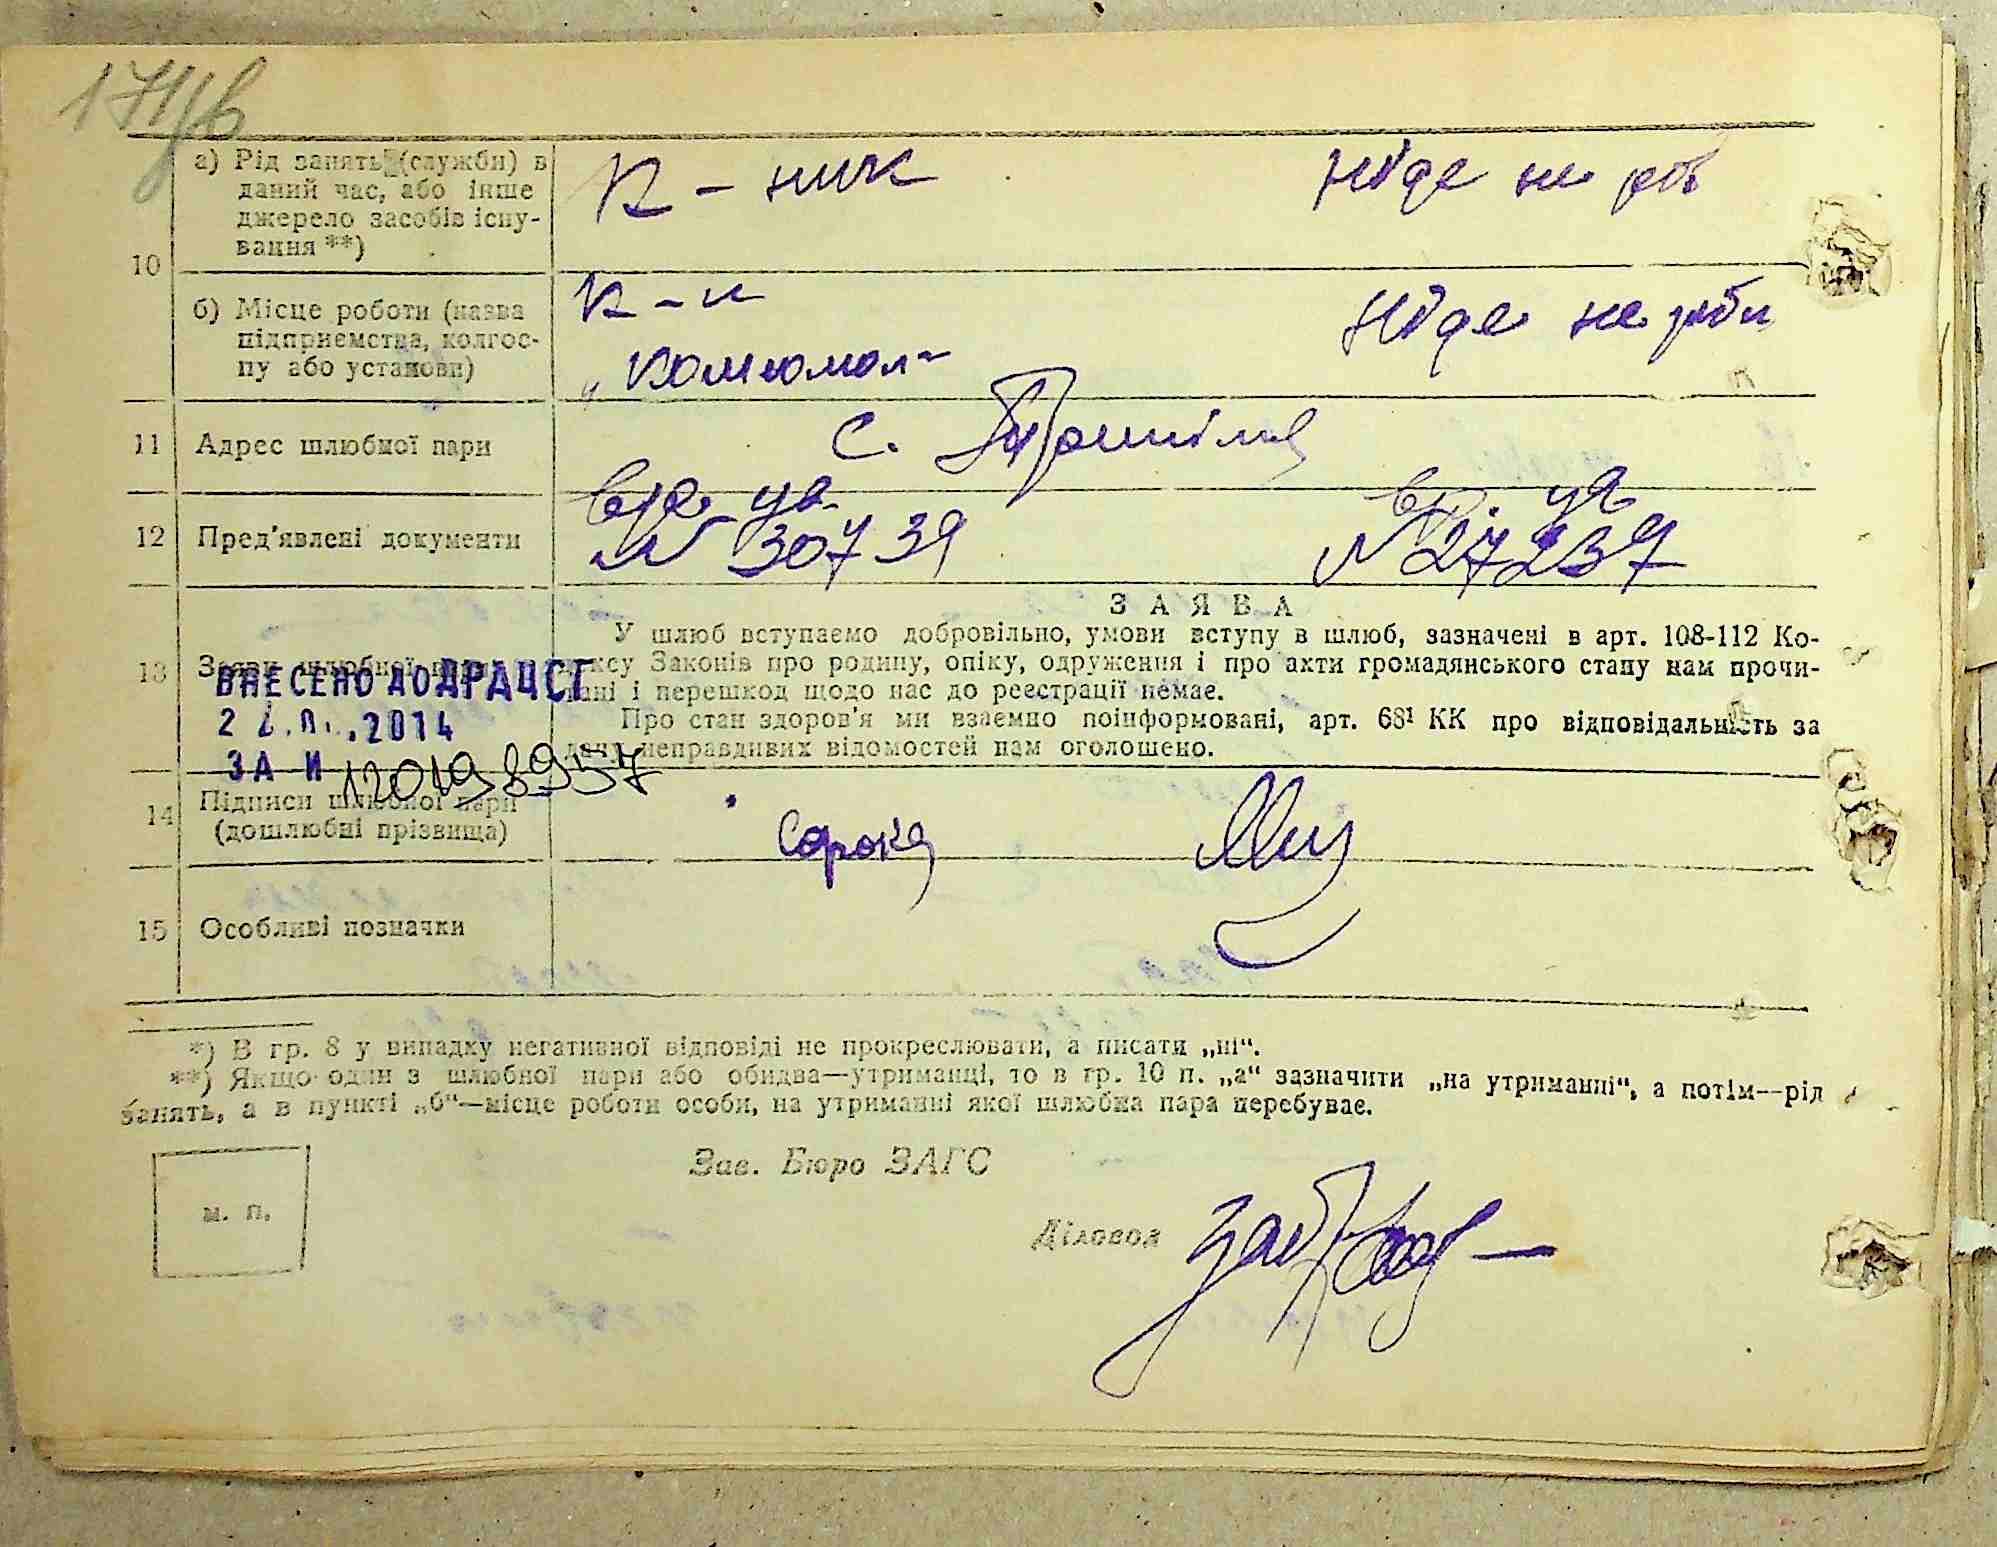 171
а) Рід занять (служби) в
даний час, або інше
джерело засобів існу-
вання **)
К - ник
Нїде не роб
10
б) Місце роботи (назва
підприємства, колгос-
пу або установи)
К-н
„Комюмол"
Нїде не роби
11
Адрес шлюбної пари
с.
12
Пред'явлені документи
вре. ув.
№ 30739
вр. ув.
№ 27237
ЗАЯВА
13
Заяви шлюбної пари
У шлюб вступаємо добровільно, умови вступу в шлюб, зазначені в арт. 108-112 Ко-
дексу Законів про родину, опіку, одруження і про акти громадянського стану нам прочи-
тані і перешкод щодо нас до реєстрації немає.
Про стан здоров'я ми взаємно поінформовані, арт. 68¹ КК про відповідальність за
дачу неправдивих відомостей нам оголошено.
ВНЕСЕНО ДО ДРАЦСГ
2014
ЗА И 120198957
14
Підписи шлюбної пари
(дошлюбні прізвища)
Сорока
15
Особливі позначки
*) В гр. 8 у випадку негативної відповіді не прокреслювати, а писати „ні“.
**) Якщо один з шлюбної пари або обидва—утриманці, то в гр. 10 п. „а“ зазначити „на утриманні“, а потім—рід
занять, а в пункті „б“—місце роботи особи, на утриманні якої шлюбна пара перебуває.
м. п.
Зав. Бюро ЗАГС
Діловод